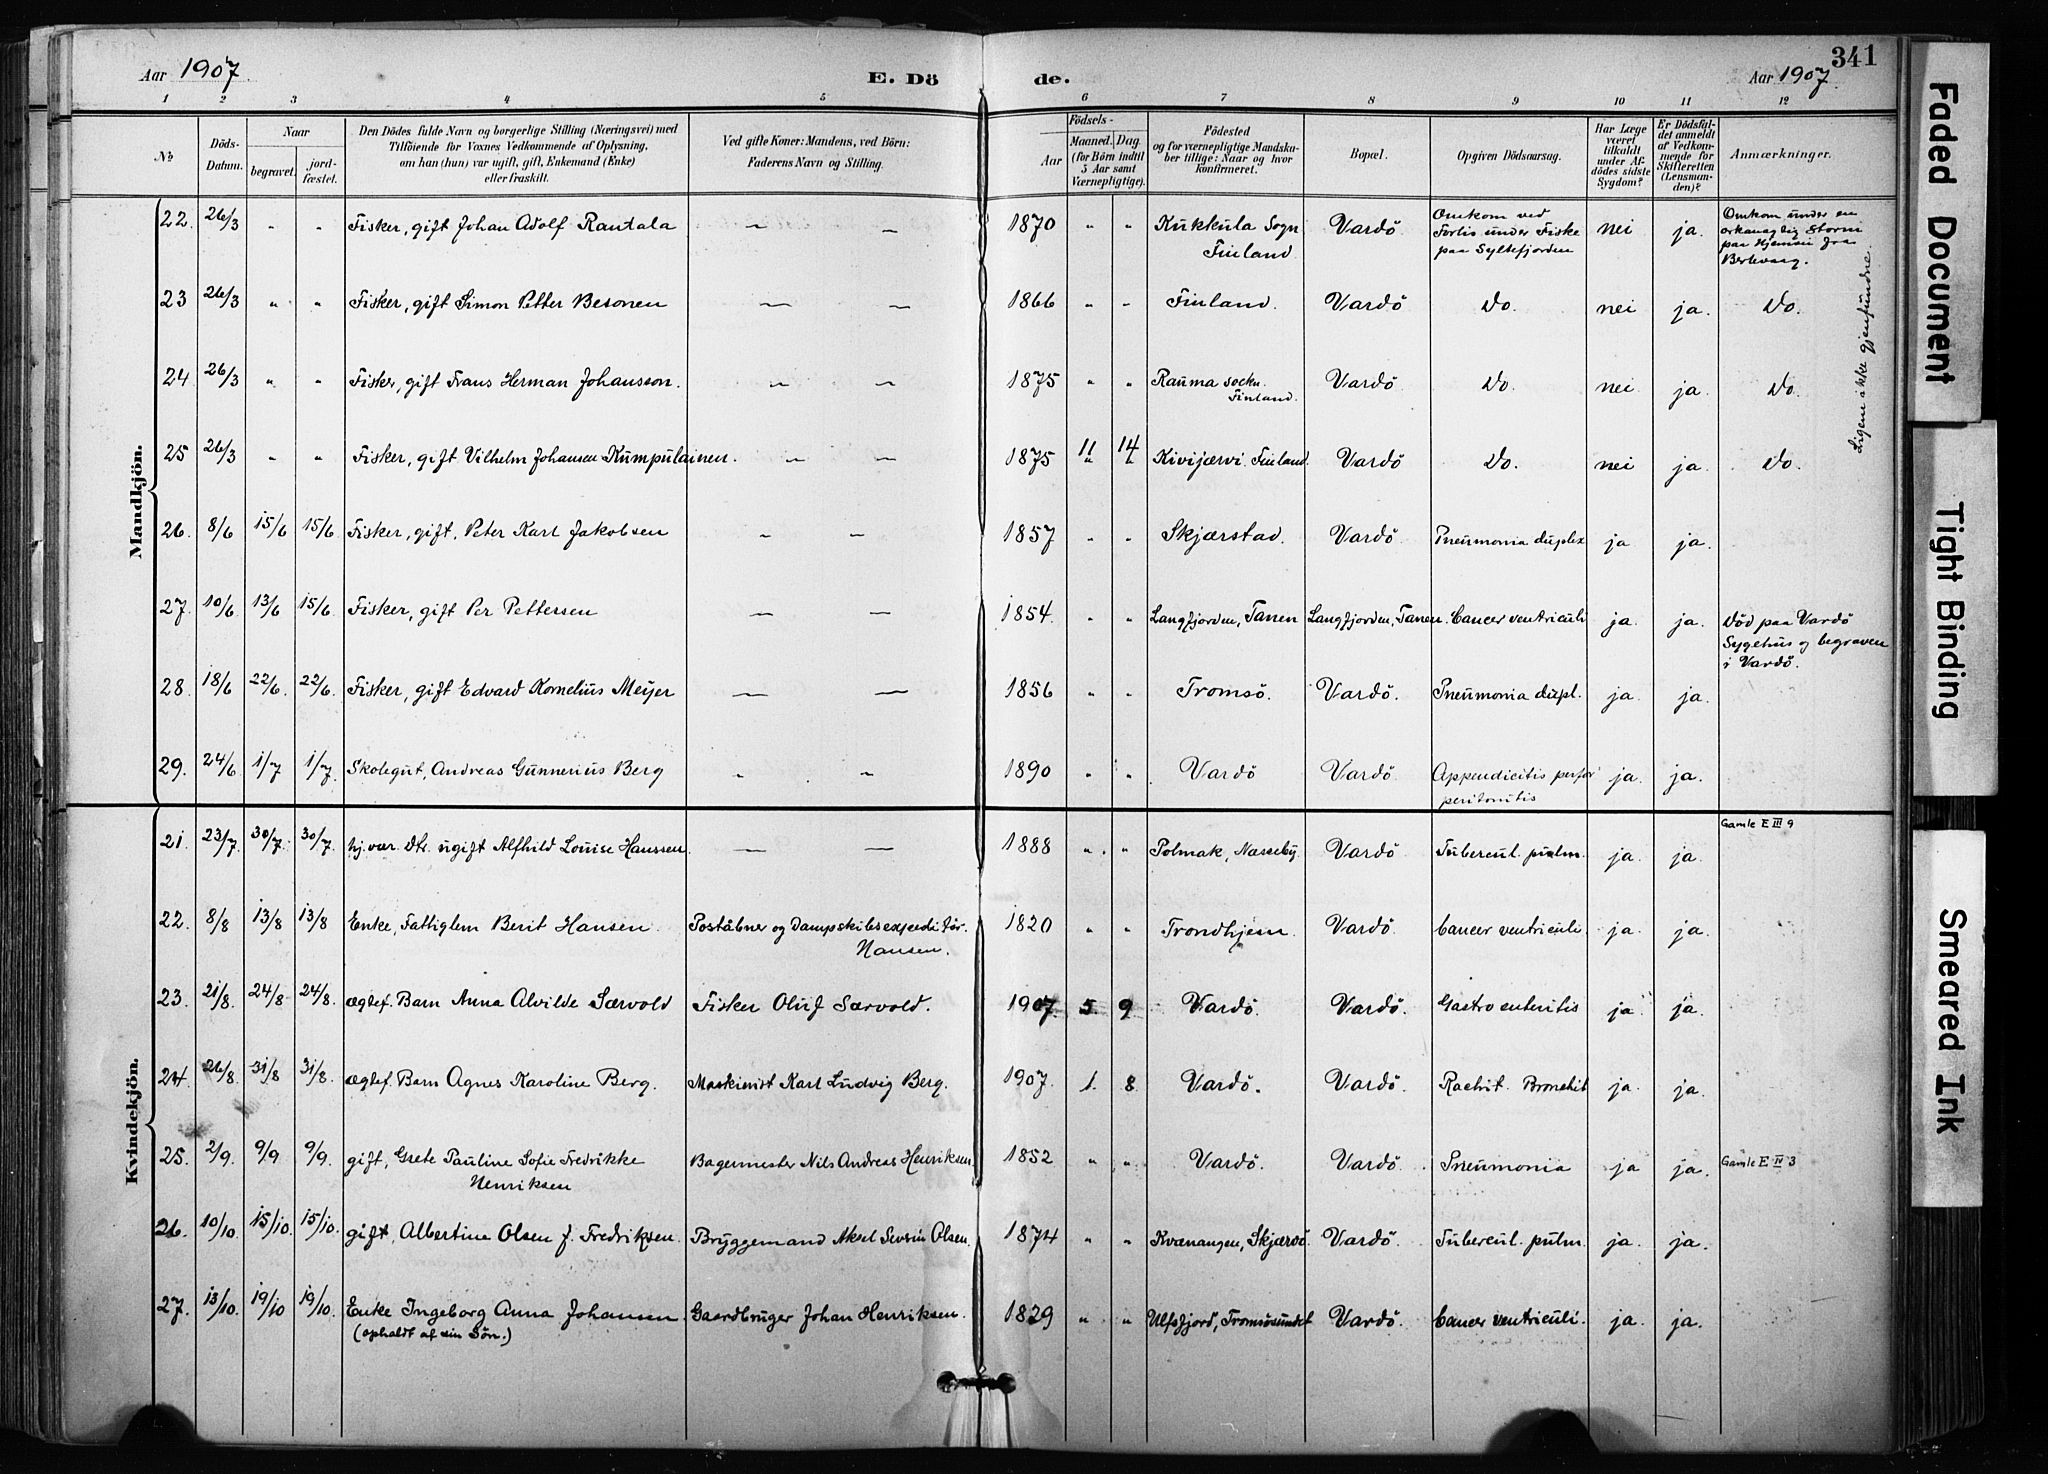 341
Aar 1907.
E. Dö de.
Aar 1907.
1 2 3 4 5 6 7 8 9 10 11 12
No
Döds-Datum.
Naar
begravet.
jordfæstet.
Den Dödes fulde Navn og borgerlige Stilling (Næringsvei) med
Tilföiende for Voxnes Vedkommende af Oplysning,
om han (hun) var ugift, gift, Enkemand (Enke)
eller fraskilt.
Ved gifte Koner: Mandens, ved Börn:
Faderens Navn og Stilling.
Födsels-
Aar
Maaned. Dag
(for Börn indtil
5 Aar samt
Værnepligtige).
Födested
og for værnepligtige Mandska-
ber tillige: Naar og hvor
konfirmeret.
Bopæl.
Opgiven Dödsaarsag.
Har Læge
været
tilkaldt
under Af-
dödes sidste
Sygdom?
Er Dödsfal-
det anmeldt
af Vedkom-
mende for
Skifteretten
(Lensman-
den)?
Anmærkninger.
Mandkjön.
22. 26/3 " " Fisker, gift Johan Adolf Rautala — — 1870 " " Kukkula Sogn Finland. Vardö Omkom ved Forlis under Fiske paa Syltefjorden nei ja. Omkom under en orkanagtig Storm paa Hjemvei fra Berlevaag.
23 26/3 " " Fisker, gift Simon Petter Besonen — — 1866 " " Finland. Vardö Do. nei ja. Do.
24 26/3 " " Fisker, gift Frans Herman Johansson. — — 1875 " " Rauma sockn. Finland. Vardö Do. nei ja Do.
25 26/3 " " Fisker, gift Vilhelm Johansen Kumpulainen. — — 1875 11 14 Kivijærvi. Finland. Vardö Do. nei ja Do.
Ligene ikke gjenfundne.
26. 8/6 15/6 15/6 Fisker, gift, Peter Karl Jakobsen " " 1857 " " Skjærstad. Vardö. Pneumonia duplex ja ja.
27. 10/6 13/6 15/6 Fisker, gift Per Pettersen — — 1854. " " Langfjorden, Tanen Langfjorden, Tanen. Cancer ventriculi ja. ja. Död paa Vardö Sygehus og begraven i Vardö.
28. 18/6 22/6. 22/6. Fisker, gift Edvard Kornelius Meyer — — 1856 " " Tromsö. Vardö. Pneumonia dupl. ja. ja
29. 24/6 1/7 1/7. Skolegut, Andreas Gunnerius Berg " " 1890 " " Vardö Vardö. Appendicitis perfor peritonitis ja. ja.
Kvindekjön.
21. 23/7 30/7. 30/7. hj.vær. Dtr. ugift Alfhild Louise Hanssen. — — 1888 " " Polmak, Nasseby. Vardö Tubercul. pulm. ja. ja. Gamle E III 9
22. 8/8 13/8 13/8 Enke, Fattiglem Berit Hansen. Poståbner og Dampskibsexpeditör. Hansen. 1820 " " Trondhjem. Vardö. Cancer ventriculi. ja. ja.
23. 21/8. 24/8 24/8. ægtef. Barn Anna Alvilde Særvold Fisker Oluf Særvold. 1907. 5. 9. Vardö. Vardö. Gastro enteritis ja ja.
24. 26/8. 31/8 31/8. ægtef. Barn Agnes Karoline Berg. Maskinist Karl Ludvig Berg. 1907. 1. 8. Vardö. Vardö. Rachit. Bronchit ja. ja.
25. 2/9. 9/9 9/9. gift, Grete Pauline Sofie Fredrikke Henriksen Bagermester Nils Andreas Henriksen. 1852 " " Vardö. Vardö. Pneumonia ja ja. Gamle E IV 3
26. 10/10 15/10. 15/10. gift, Albertine Olsen f. Fredriksen. Bryggemand Aksel Severin Olsen. 1874 " " Kvænangen, Skjærvö. Vardö. Tubercul. pulm. ja. ja.
27. 13/10. 19/10 19/10. Enke Ingeborg Anna Johansen. (opholdt af sin Sön.) Gaardbruger Johan Henriksen. 1829 " " Ulfsfjord, Tromsösundet Vardö. Cancer ventriculi. ja. ja.
Faded Document
Tight Binding
Smeared Ink